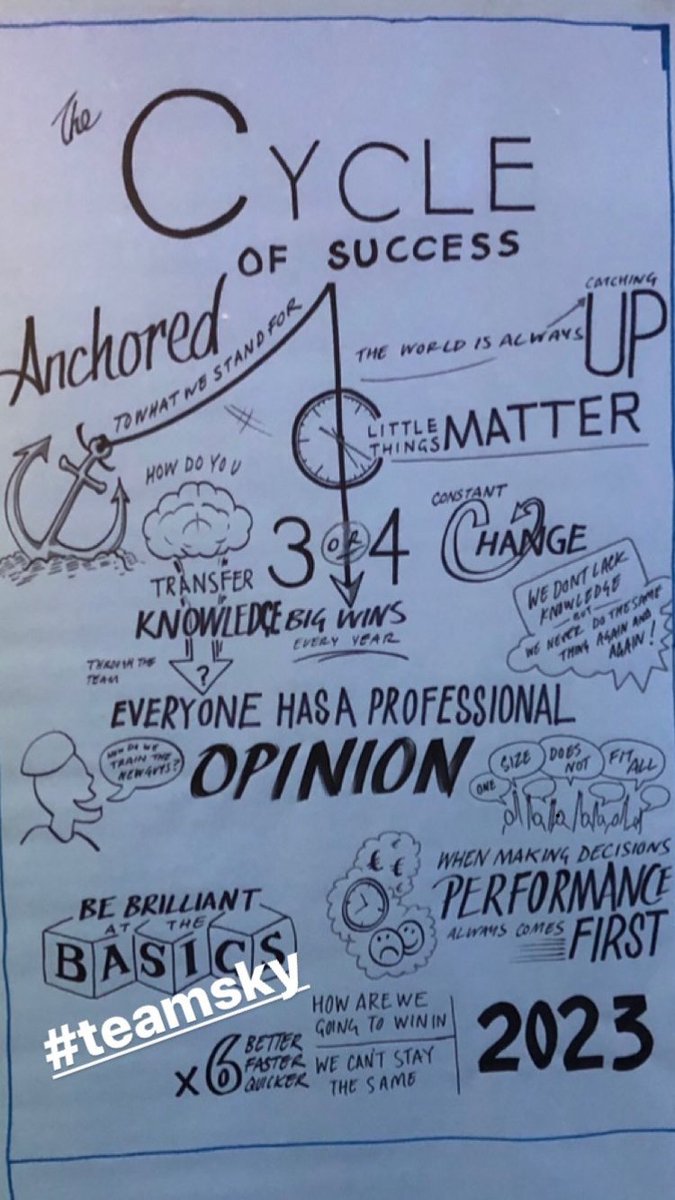 The
CYCLE
OF SUCCESS
Anchored
TO WHAT WE STAND FOR
THE WORLD IS ALWAYS
CATCHING
UP
LITTLE
THINGS
MATTER
HOW DO YOU
TRANSFER
KNOWLEDGE
THROUGH THE
TEAM
?
3 OR 4
BIG WINS
EVERY YEAR
CONSTANT
CHANGE
WE DONT LACK
KNOWLEDGE
BUT
WE NEVER DO THE SAME
THING AGAIN AND
AGAIN!
EVERYONE HAS A PROFESSIONAL
OPINION
HOW DO WE
TRAIN THE
NEW GUYS?
ONE
SIZE
DOES
NOT
FIT ALL
€ €
€
WHEN MAKING DECISIONS
PERFORMANCE
ALWAYS COMES
FIRST
BE BRILLIANT
AT THE
BASICS
#teamsky
x6
BETTER
FASTER
QUICKER
HOW ARE WE
GOING TO WIN IN
WE CAN'T STAY
THE SAME
2023